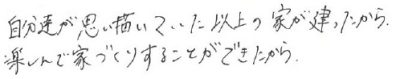 自分達が思い描いていた以上の家が建ったから.
楽しんで家づくりすることができたから.